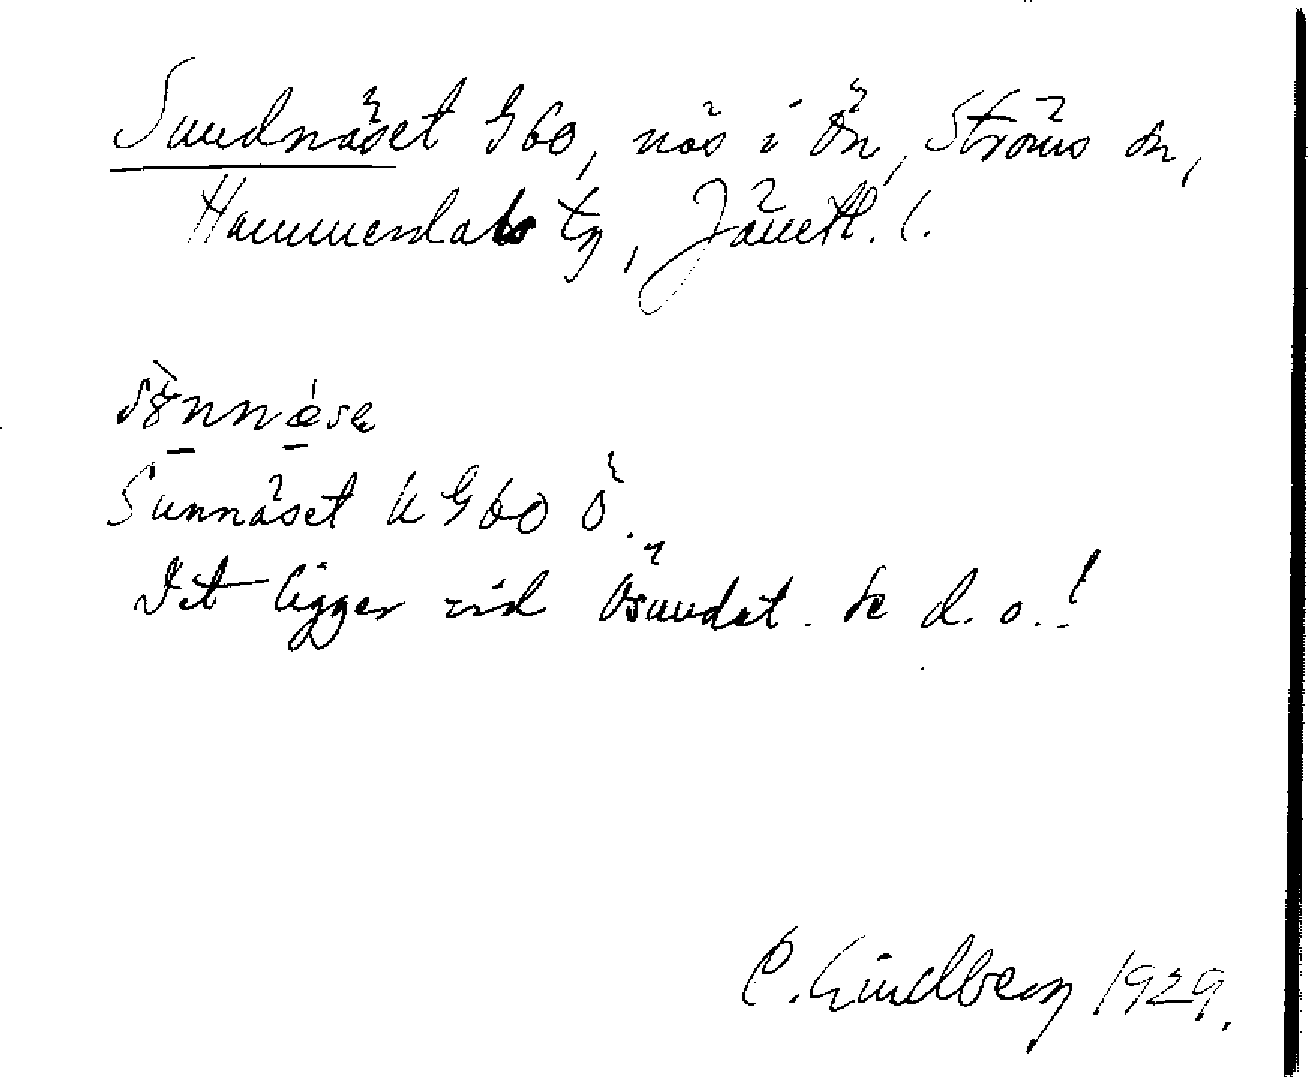 Sundnäset G60, näs i Ön, Ströms sn,
Hammerdals tg, Jämtl. l.
Sunnäset k G60 Ö.
Det ligger vid Ösundet. Se d. o.!
C. Lindberg 1929.